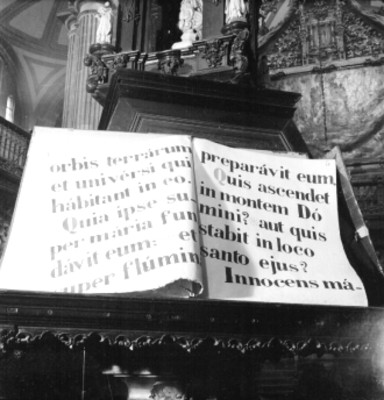 orbis terrárum
et univérsi qui
hábitant in eo.
Quia ipse su-
per mária fun
dávit eum: et
super flúmin
preparávit eum
Quis ascendet
in montem Dó
mini? aut quis
stabit in loco
santo ejus?
Innocens má-